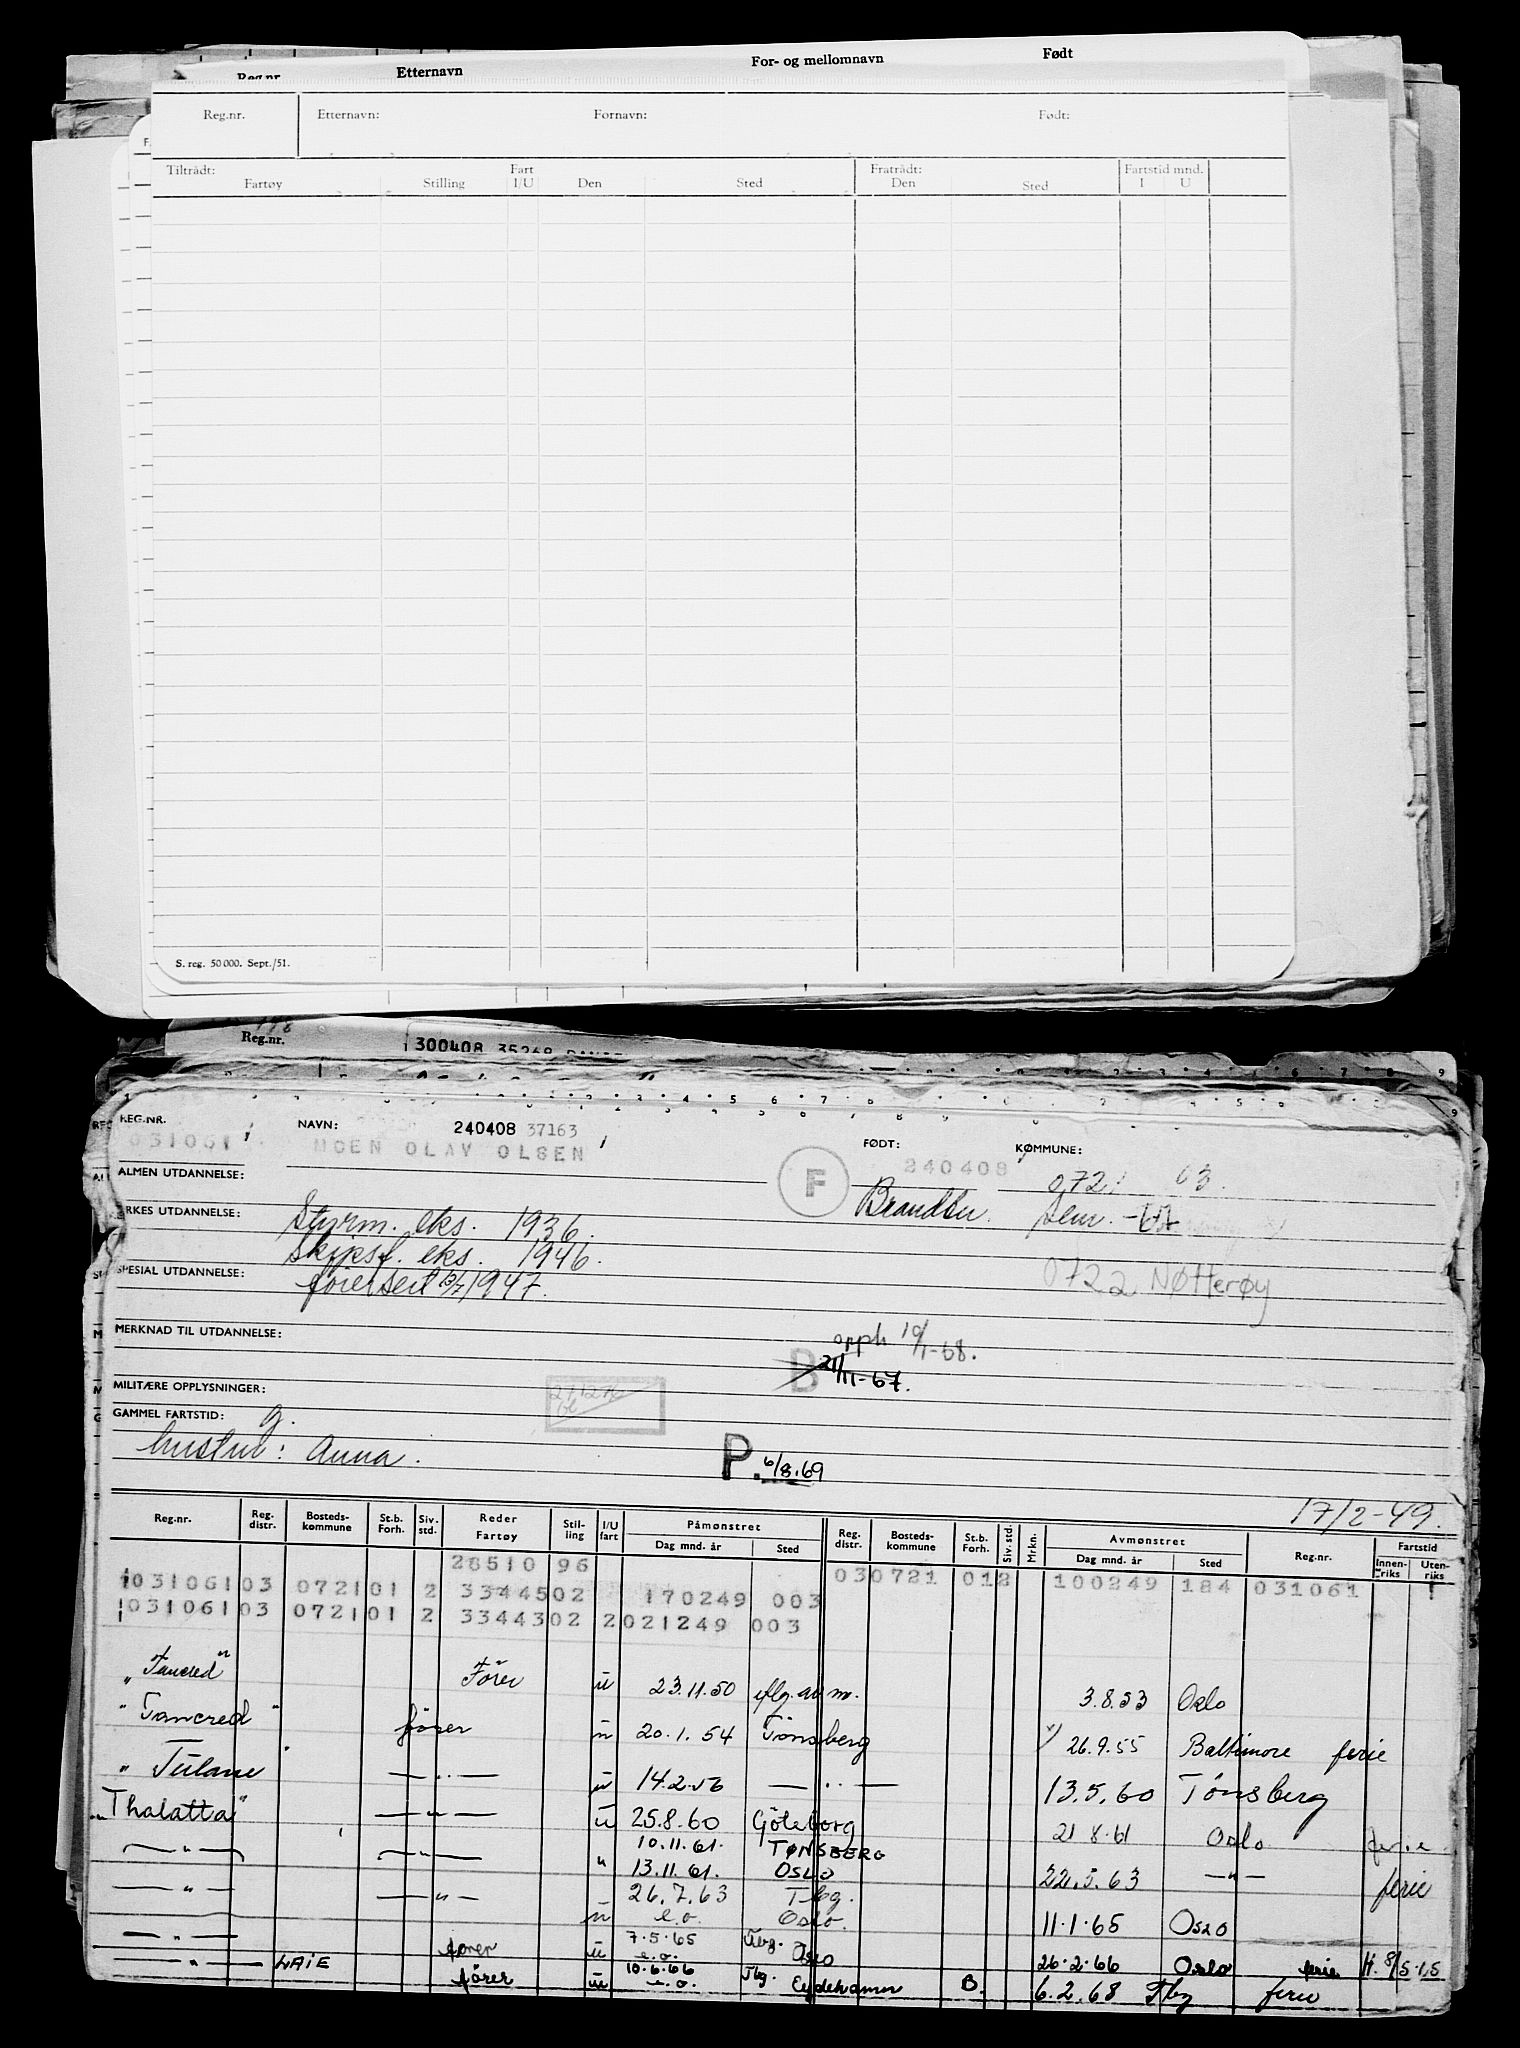 Reg.nr. Etternavn For- og mellomnavn Født
Reg.nr. Etternavn: Fornavn: Født:
Tiltrådt: Fart Fratrådt: Fartstid mnd.
Fartøy Stilling I/U Den Sted Den Sted I U
S. reg. 50 000. Sept./51.
Reg.nr. 300408 35268
REG.NR. NAVN: 240408 37163 FØDT: KOMMUNE:
031061 MOEN OLAV OLSEN F 240408 0721 03
ALMEN UTDANNELSE:
YRKES UTDANNELSE: Styrm. eks. 1936. Brandbu. Sem.
Skipsf. eks. 1946.
SPESIAL UTDANNELSE: 1947. 0722 Nøtterøy
MERKNAD TIL UTDANNELSE: opph 10/1-68.
B 21/11-67.
MILITÆRE OPPLYSNINGER:
GAMMEL FARTSTID: g.
hustru: Anna. P. 6/8.69
17/2-49.
Reg.nr. Reg. distr. Bosteds-kommune St.b. Forh. Siv. std. Reder Fartøy Stil-ling I/U fart Påmønstret Dag mnd. år Sted Reg. distr. Bosteds-kommune St.b. Forh. Siv. std. Mrkn. Avmønstret Dag mnd. år Sted Reg.nr. Fartstid Innen-riks Uten-riks
28510 96
103106103 072101 2 3344502 170249 003 030721 012 100249 184 031061
103106103 072101 2 3344302 2021249 003
"Tancred" Fører u 23.11.50 flg. av m. 3.8.53 Oslo
"Tancred" fører u 20.1.54 Tønsberg 26.9.55 Baltimore ferie
"Tulane — " — u 14.2.56 — " — 13.5.60 Tønsberg
"Thalatta" — " — u 25.8.60 Göteborg 21 8.61 Oslo ferie
— " — — " — 10.11.61. TØNSBERG
" 13.11.61. OSLO 22.5.63 — " — ferie
— " — — " — 26.7.63 Tbg.
u e.o. Oslo. 11.1.65 Oslo
— " — fører u 7.5.65 Tbg.
e.o. Oslo 26.2.66 Oslo ferie H. 8/5.1,5
— " — LAIE fører u 10.6.66 Tbg.
e.o. Eydehavn B. 6.2.68 Tbg ferie